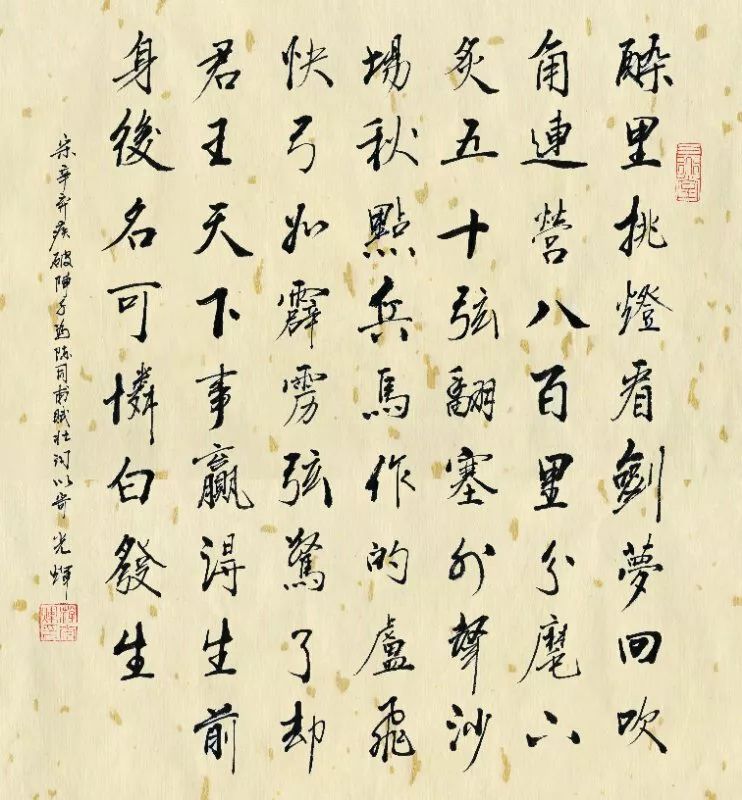 酔里挑燈看劍夢回吹
角連營八百里分麾下
炙五十弦翻塞外聲沙
場秋點兵馬作的盧飛
快弓如霹雳弦驚了却
君王天下事贏得生前
身後名可憐白發生
宋辛弃疾破陣子為陈同甫賦壯詞以寄 光輝